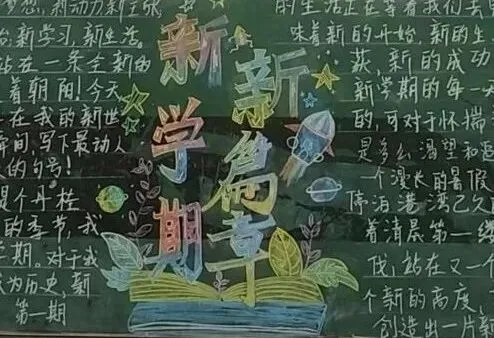 新学期
新篇章
梦想,新动力新立成
新学习,新生活,
站在一条全新的
着朝阳!今天
在我的新世
瞬间,写下最动人
的句号!
是个丹桂
的季节,我
学期。对于我
成为历史,新
第一期
的生活正在等着我们去
味着新的开始,新的生
获,新的成功
新学期的每一天
的,可对于怀揣
是多么渴望和
一个漫长的暑假
停泊港湾已久
着清晨第一缕
伐,站在又一个
个新的高度,
创造出一片新